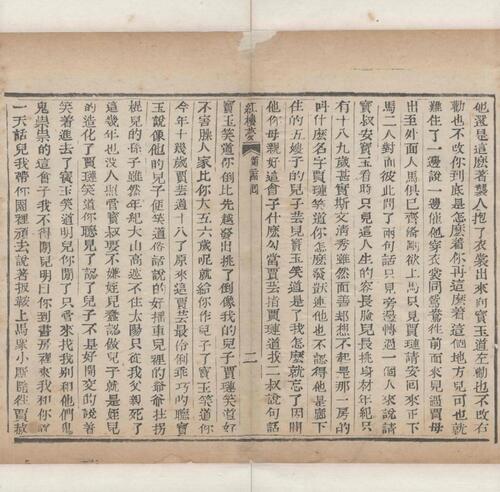 他還是這麽着襲人抱了衣裳出來向寶玉道左勸也不改右
勸也不改你到底是怎麽着你再這麽着這個地方兒可也就
難住了一邊說一邊催他穿衣裳同鴛鴦往前面來見過賈母
出至外面人馬俱已齊備剛欲上馬只見賈璉請安回來正下
馬二人對面彼此問了兩句話只見旁邊轉過一個人來說請
寶叔安寶玉看時只見這人生的容長臉兒長挑身材年紀只
有十八九歲甚實斯文清秀雖然面善却想不起是那一房的
呌什麽名字賈璉笑道你怎麽發獃連他也不認得他是廊下
住的五嫂子的兒子芸兒寶玉笑道是了我怎麽就忘了因問
他你母親好這會子什麽勾當賈芸指賈璉道找二叔說句話
紅樓夢 第二十四回 二
寶玉笑道你倒比先越發出挑了倒像我的兒子賈璉笑道好
不害臊人家比你大五六歲呢就給你作兒子了寶玉笑道你
今年十幾歲賈芸道十八了原來這賈芸最伶俐乖巧的聽寶
玉說像他的兒子便笑道俗話說的好搖車兒裡的爺爺拄拐
棍兒的孫子雖然年紀大山高遮不住太陽只從我父親死了
這幾年也没人照管寶叔要不嫌姪兒蠢認做兒子就是姪兒
的造化了賈璉笑道你聽見了認了兒子不是好開交的說着
笑着進去了寶玉笑道明兒你閒了只管來找我別和他們鬼
鬼祟祟的這會子我不得閒兒明日你到書房裡來我和你說
一天話兒我帶你園裡頑去說着扳鞍上馬衆小厮隨往賈赦